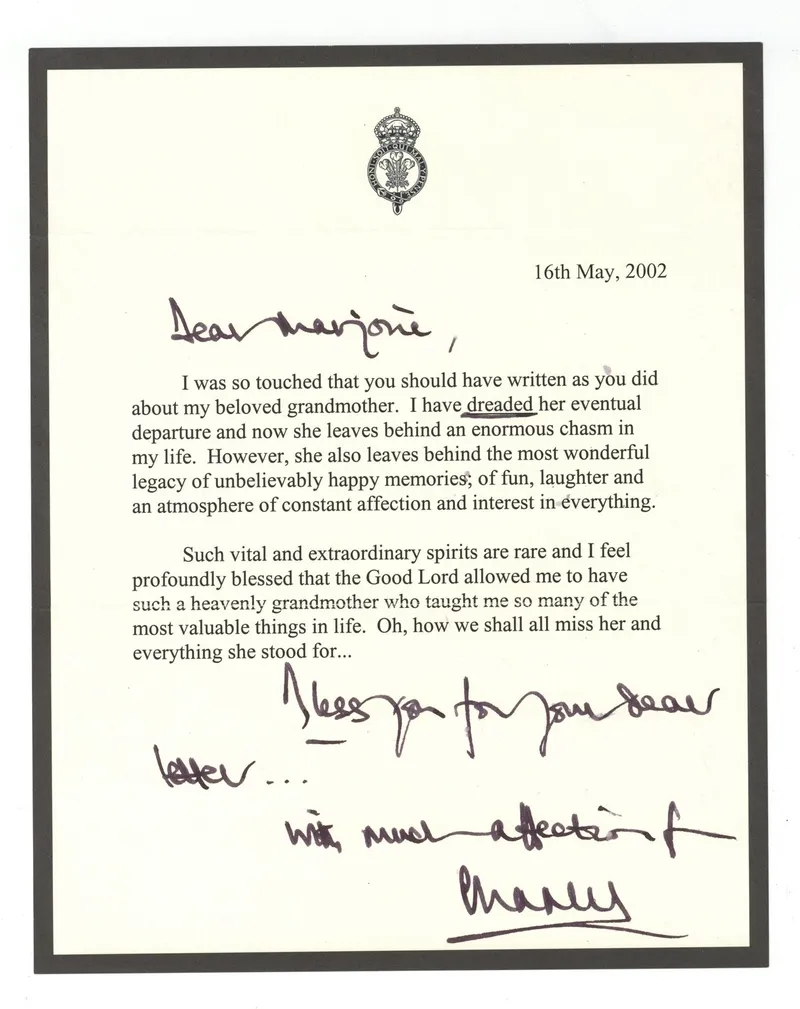 HONI·SOIT·QUI·MAL·Y·PENSE
16th May, 2002
Dear Marjorie,
I was so touched that you should have written as you did
about my beloved grandmother. I have dreaded her eventual
departure and now she leaves behind an enormous chasm in
my life. However, she also leaves behind the most wonderful
legacy of unbelievably happy memories; of fun, laughter and
an atmosphere of constant affection and interest in everything.
Such vital and extraordinary spirits are rare and I feel
profoundly blessed that the Good Lord allowed me to have
such a heavenly grandmother who taught me so many of the
most valuable things in life. Oh, how we shall all miss her and
everything she stood for...
Bless you for your dear
letter...
with much affection from
Charles